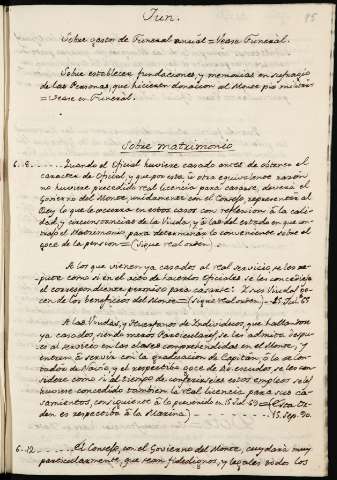 Jun.
85
Sobre gastos de Funeral anual = Vease Funeral.
Sobre establecer fundaciones, y memorias en sufragio
de las Personas, que hicieren donacion al Monte pio militar
= vease en Funeral.
Sobre matrimonio
6..8. Quando el Oficial huviere casado antes de obtener el
caracter de Oficial, y que por esta, ù otra equivalente razon
no huviere precedido real licencia para casarse, deverá el
Govierno del Monte, unidamente con el Consejo, representar al
Rey lo que le ocurra en estos casos con reflexion à la cali-
dad, y circunstancias de la Viuda, y à las del estado en que con-
trajo el Matrimonio, para determinar lo conveniente sobre el
goce de la pension = (Sigue real orden)
A los que vienen ya casados al real servicio se les re-
pute como si en el acto de hacerlos Oficiales se les concediese
el correspondiente permiso para casarse: I sus Viudas go-
cen de los beneficios del Monte = (sigue real orden) - 15 Jul. 83
A las Viudas, y Huerfanos de Individuos, que hallandose
ya casados, siendo meros Particulares, se les admite despu-
es al servicio en las clases comprehendidas en el Monte, y
entren à servir con la graduacion de Capitan, ò la de Con-
tador de Navio, y el respectivo goce de 40. escudos, se les con-
sidere como si al tiempo de conferirseles estos empleos se les
huviese concedido tambien la real licencia para sus ca-
samientos, consiguiente à lo prevenido en 15 Jul. 83 = (Esta Or-
den es respectiva à la Marina) - 15. Sep. 90.
6..12. El Consejo, con el Govierno del Monte, cuydará muy
particularmente, que sean fidedignos, y legales todos los